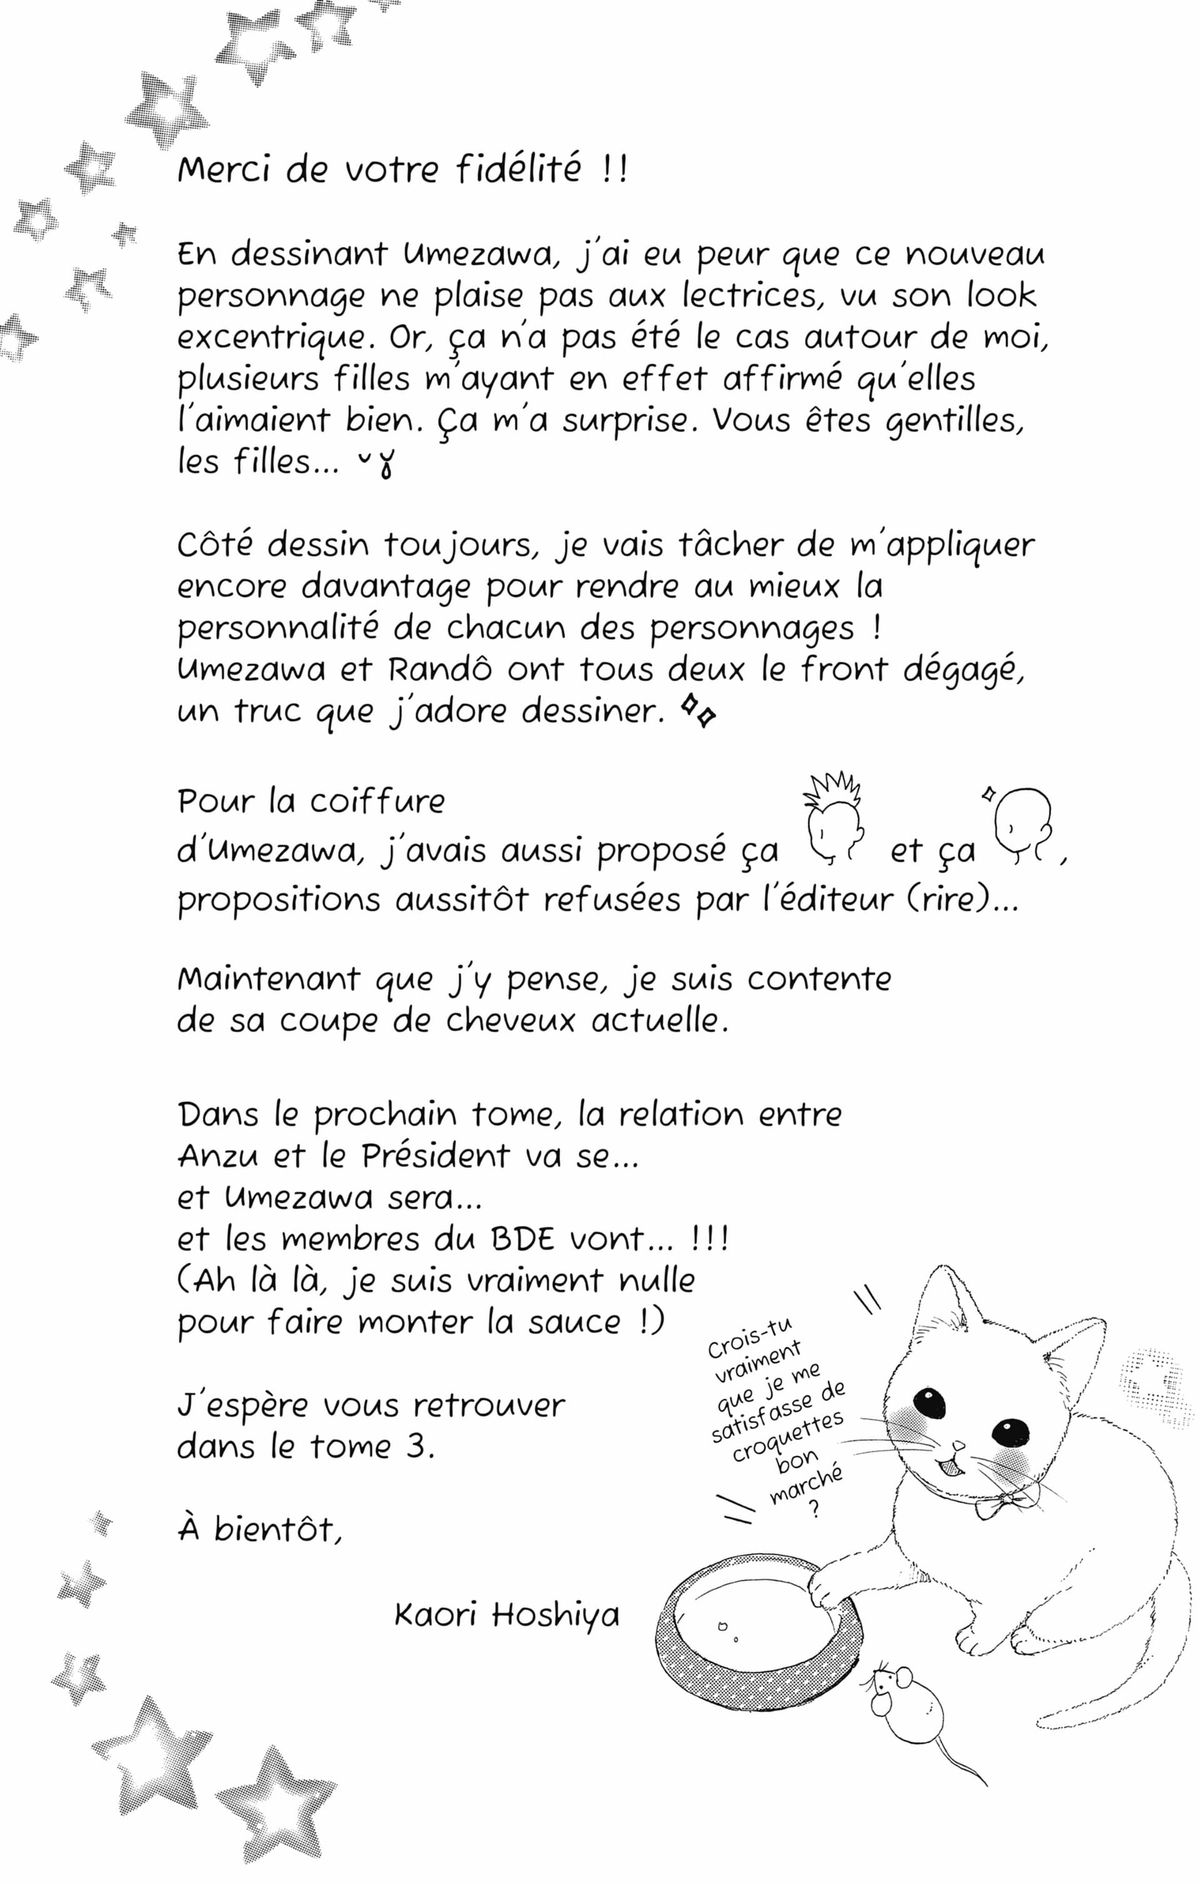 Merci de votre fidélité !!
En dessinant Umezawa, j'ai eu peur que ce nouveau
personnage ne plaise pas aux lectrices, vu son look
excentrique. Or, ça n'a pas été le cas autour de moi,
plusieurs filles m'ayant en effet affirmé qu'elles
l'aimaient bien. Ça m'a surprise. Vous êtes gentilles,
les filles...
Côté dessin toujours, je vais tâcher de m'appliquer
encore davantage pour rendre au mieux la
personnalité de chacun des personnages !
Umezawa et Randô ont tous deux le front dégagé,
un truc que j'adore dessiner.
Pour la coiffure
d'Umezawa, j'avais aussi proposé ça et ça ,
propositions aussitôt refusées par l'éditeur (rire)...
Maintenant que j'y pense, je suis contente
de sa coupe de cheveux actuelle.
Dans le prochain tome, la relation entre
Anzu et le Président va se...
et Umezawa sera...
et les membres du BDE vont... !!!
(Ah là là, je suis vraiment nulle
pour faire monter la sauce !)
Crois-tu
vraiment
que je me
satisfasse de
croquettes
bon
marché
?
J'espère vous retrouver
dans le tome 3.
À bientôt,
Kaori Hoshiya